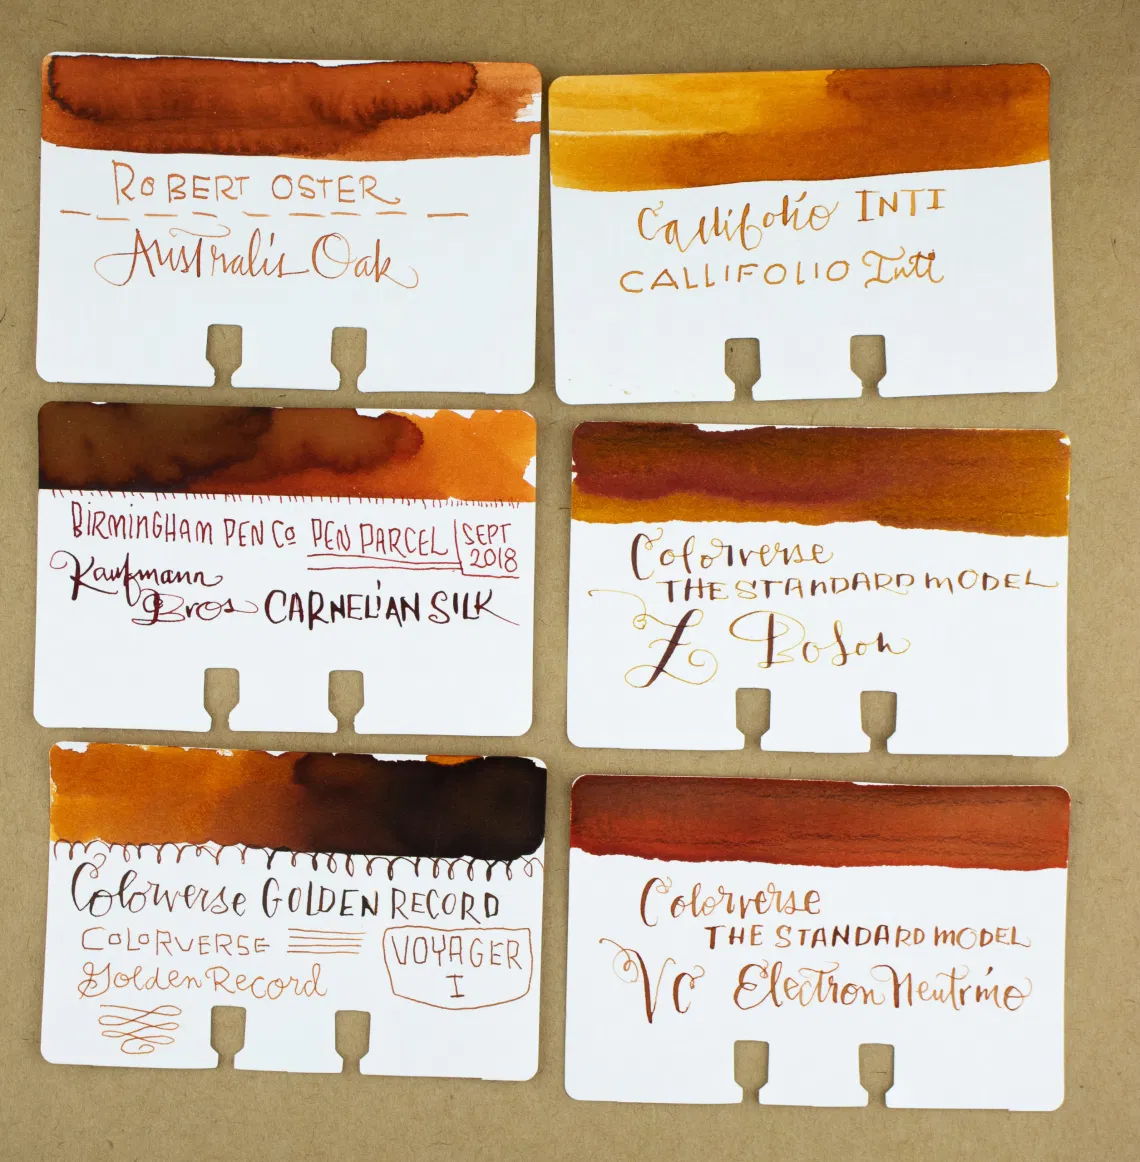 ROBERT OSTER
Australis Oak
Callifolio INTI
CALLIFOLIO Inti
BIRMINGHAM PEN CO PEN PARCEL SEPT 2018
Kaufmann
Bros CARNELIAN SILK
Colorverse
THE STANDARD MODEL
Z Boson
Colorverse GOLDEN RECORD
COLORVERSE
Golden Record
VOYAGER
I
Colorverse
THE STANDARD MODEL
VC Electron Neutrino